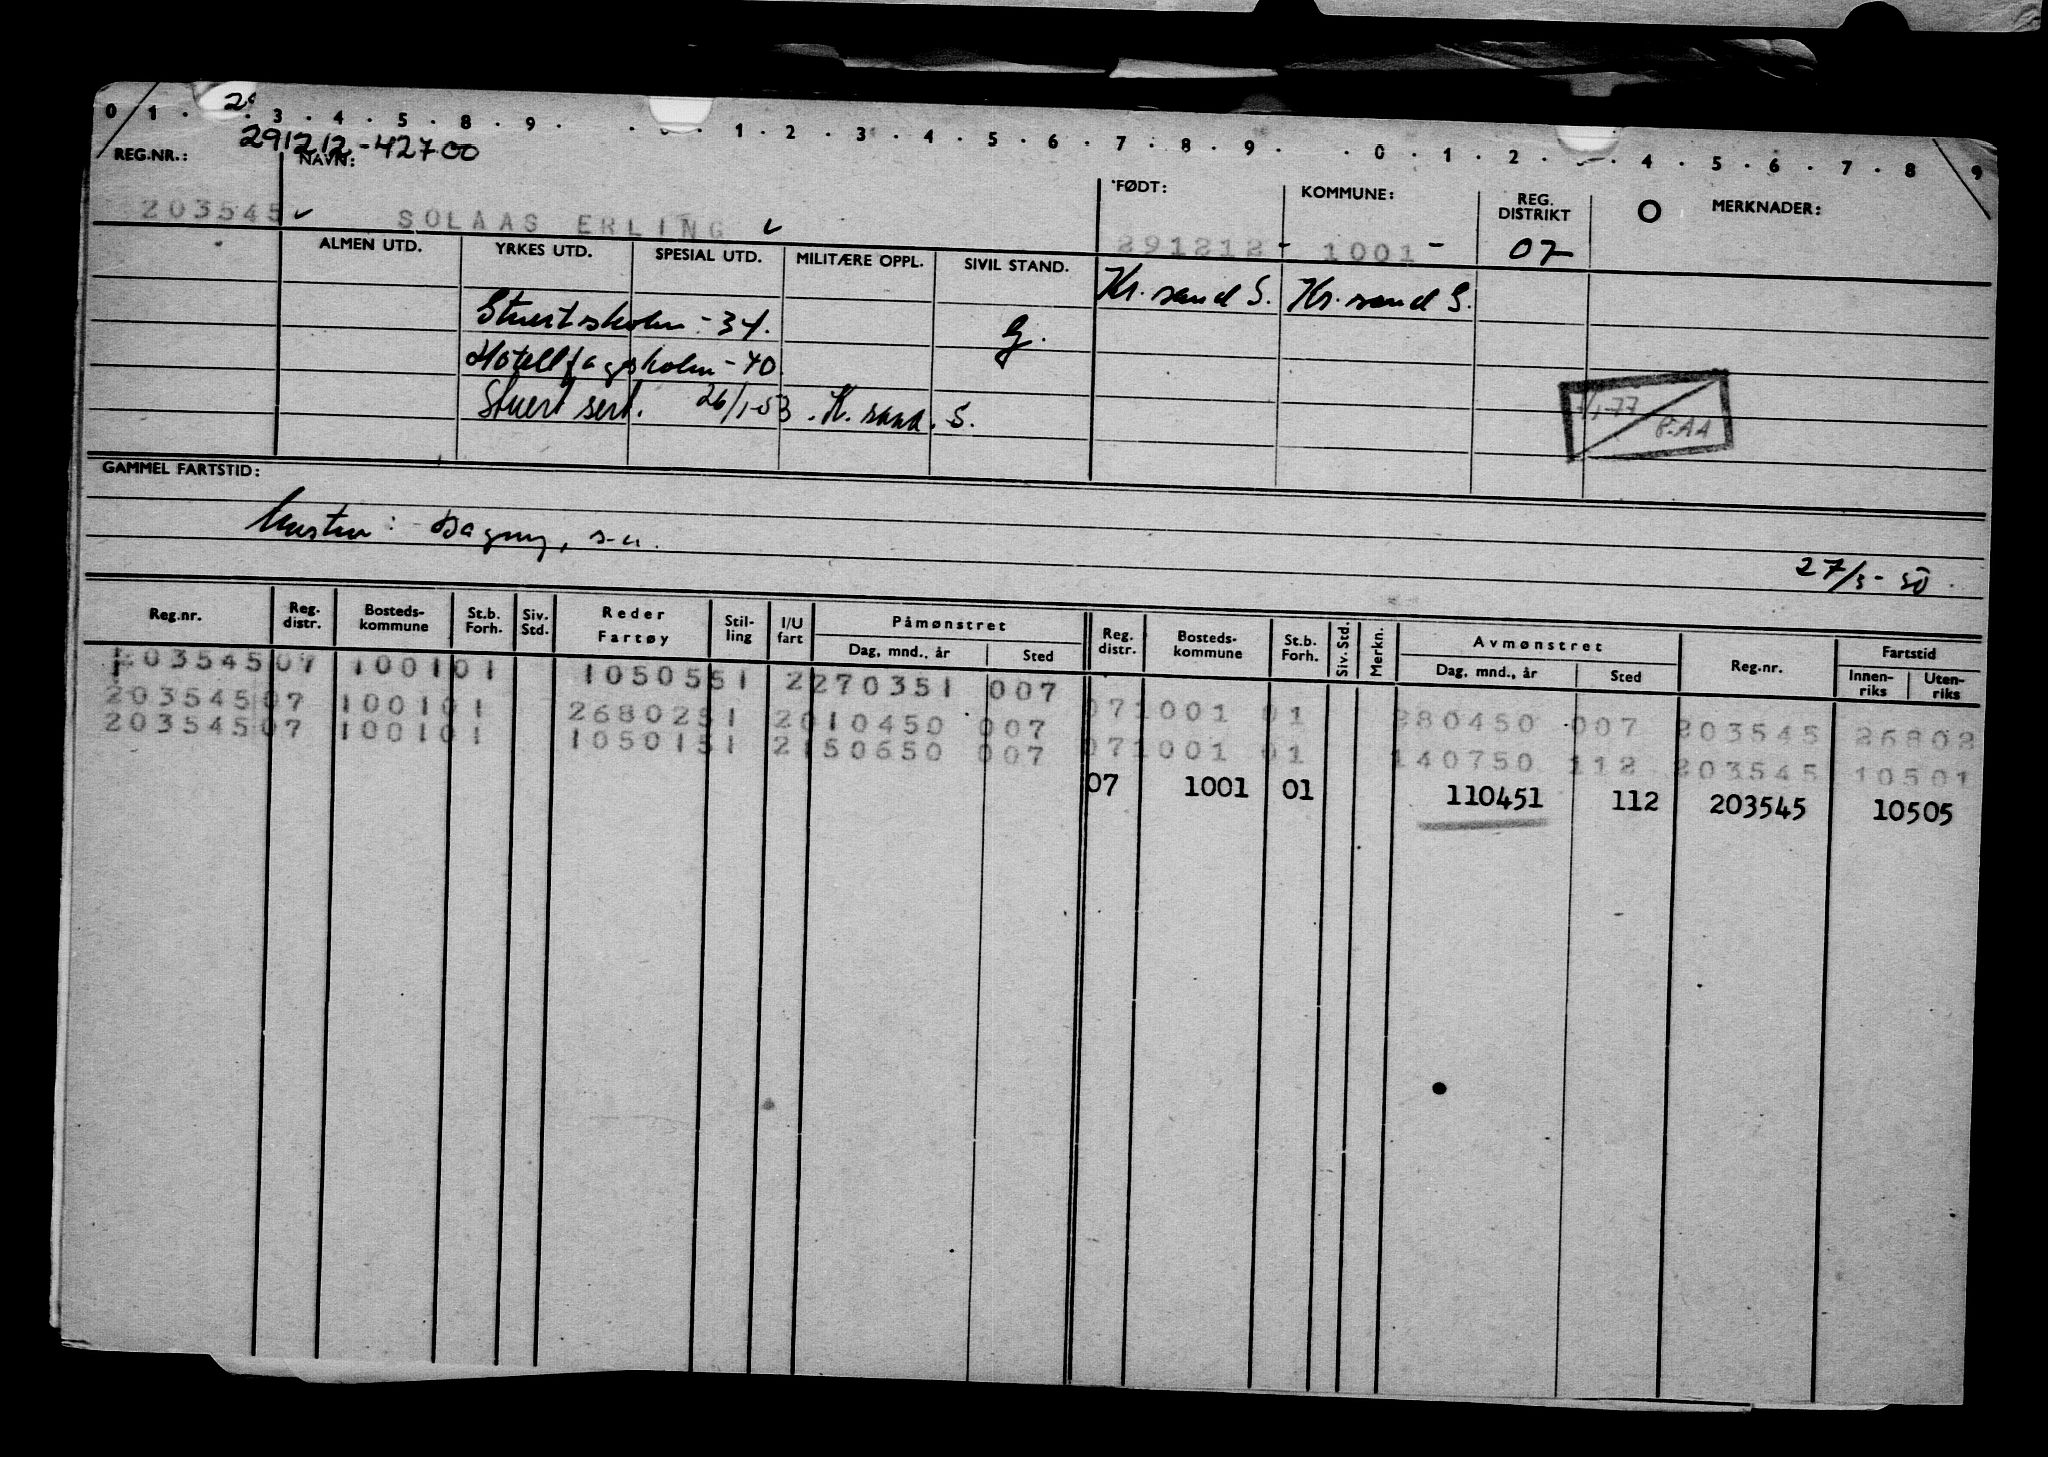 0 1 . 2 . 3 . 4 . 5 . 8 . 9 . . 1 . 2 . 3 . 4 . 5 . 6 . 7 . 8 . 9 . . 0 . 1 . 2 . . 4 . 5 . 6 . 7 . 8 9
291212-42700
REG.NR.: NAVN: FØDT: KOMMUNE: REG. DISTRIKT O MERKNADER:
203545 SOLAAS ERLING 291212- 1001- 07
ALMEN UTD. YRKES UTD. SPESIAL UTD. MILITÆRE OPPL. SIVIL STAND. Kr. sand S. Kr. sand S.
Stuertskolen - 34. g.
Hotellfagskolen - 40
Stuert sert. 26/1-53. K. sand. S.
7/1-77 P.AA
GAMMEL FARTSTID:
Dagny, s.a.
27/3-50.
Reg.nr. Reg. distr. Bosteds-kommune St.b. Forh. Siv. Std. Reder Fartøy Stil-ling I/U fart Påmønstret Dag, mnd., år Sted Reg. distr. Bosteds-kommune St.b. Forh. Siv. Std. Merkn. Avmønstret Dag, mnd., år Sted Reg.nr. Fartstid Innen-riks Uten-riks
203545 07 1001 01 10505 51 2 270351 007
203545 07 1001 01 26802 51 2 010450 007 07 1001 01 280450 007 203545 26802
203545 07 1001 01 10501 51 2 150650 007 07 1001 01 140750 112 203545 10501
07 1001 01 110451 112 203545 10505